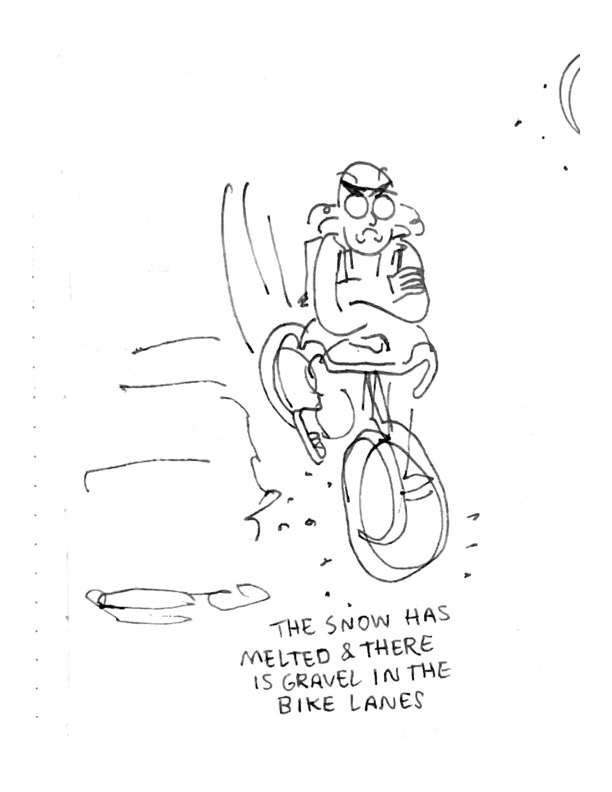 THE SNOW HAS
MELTED & THERE
IS GRAVEL IN THE
BIKE LANES